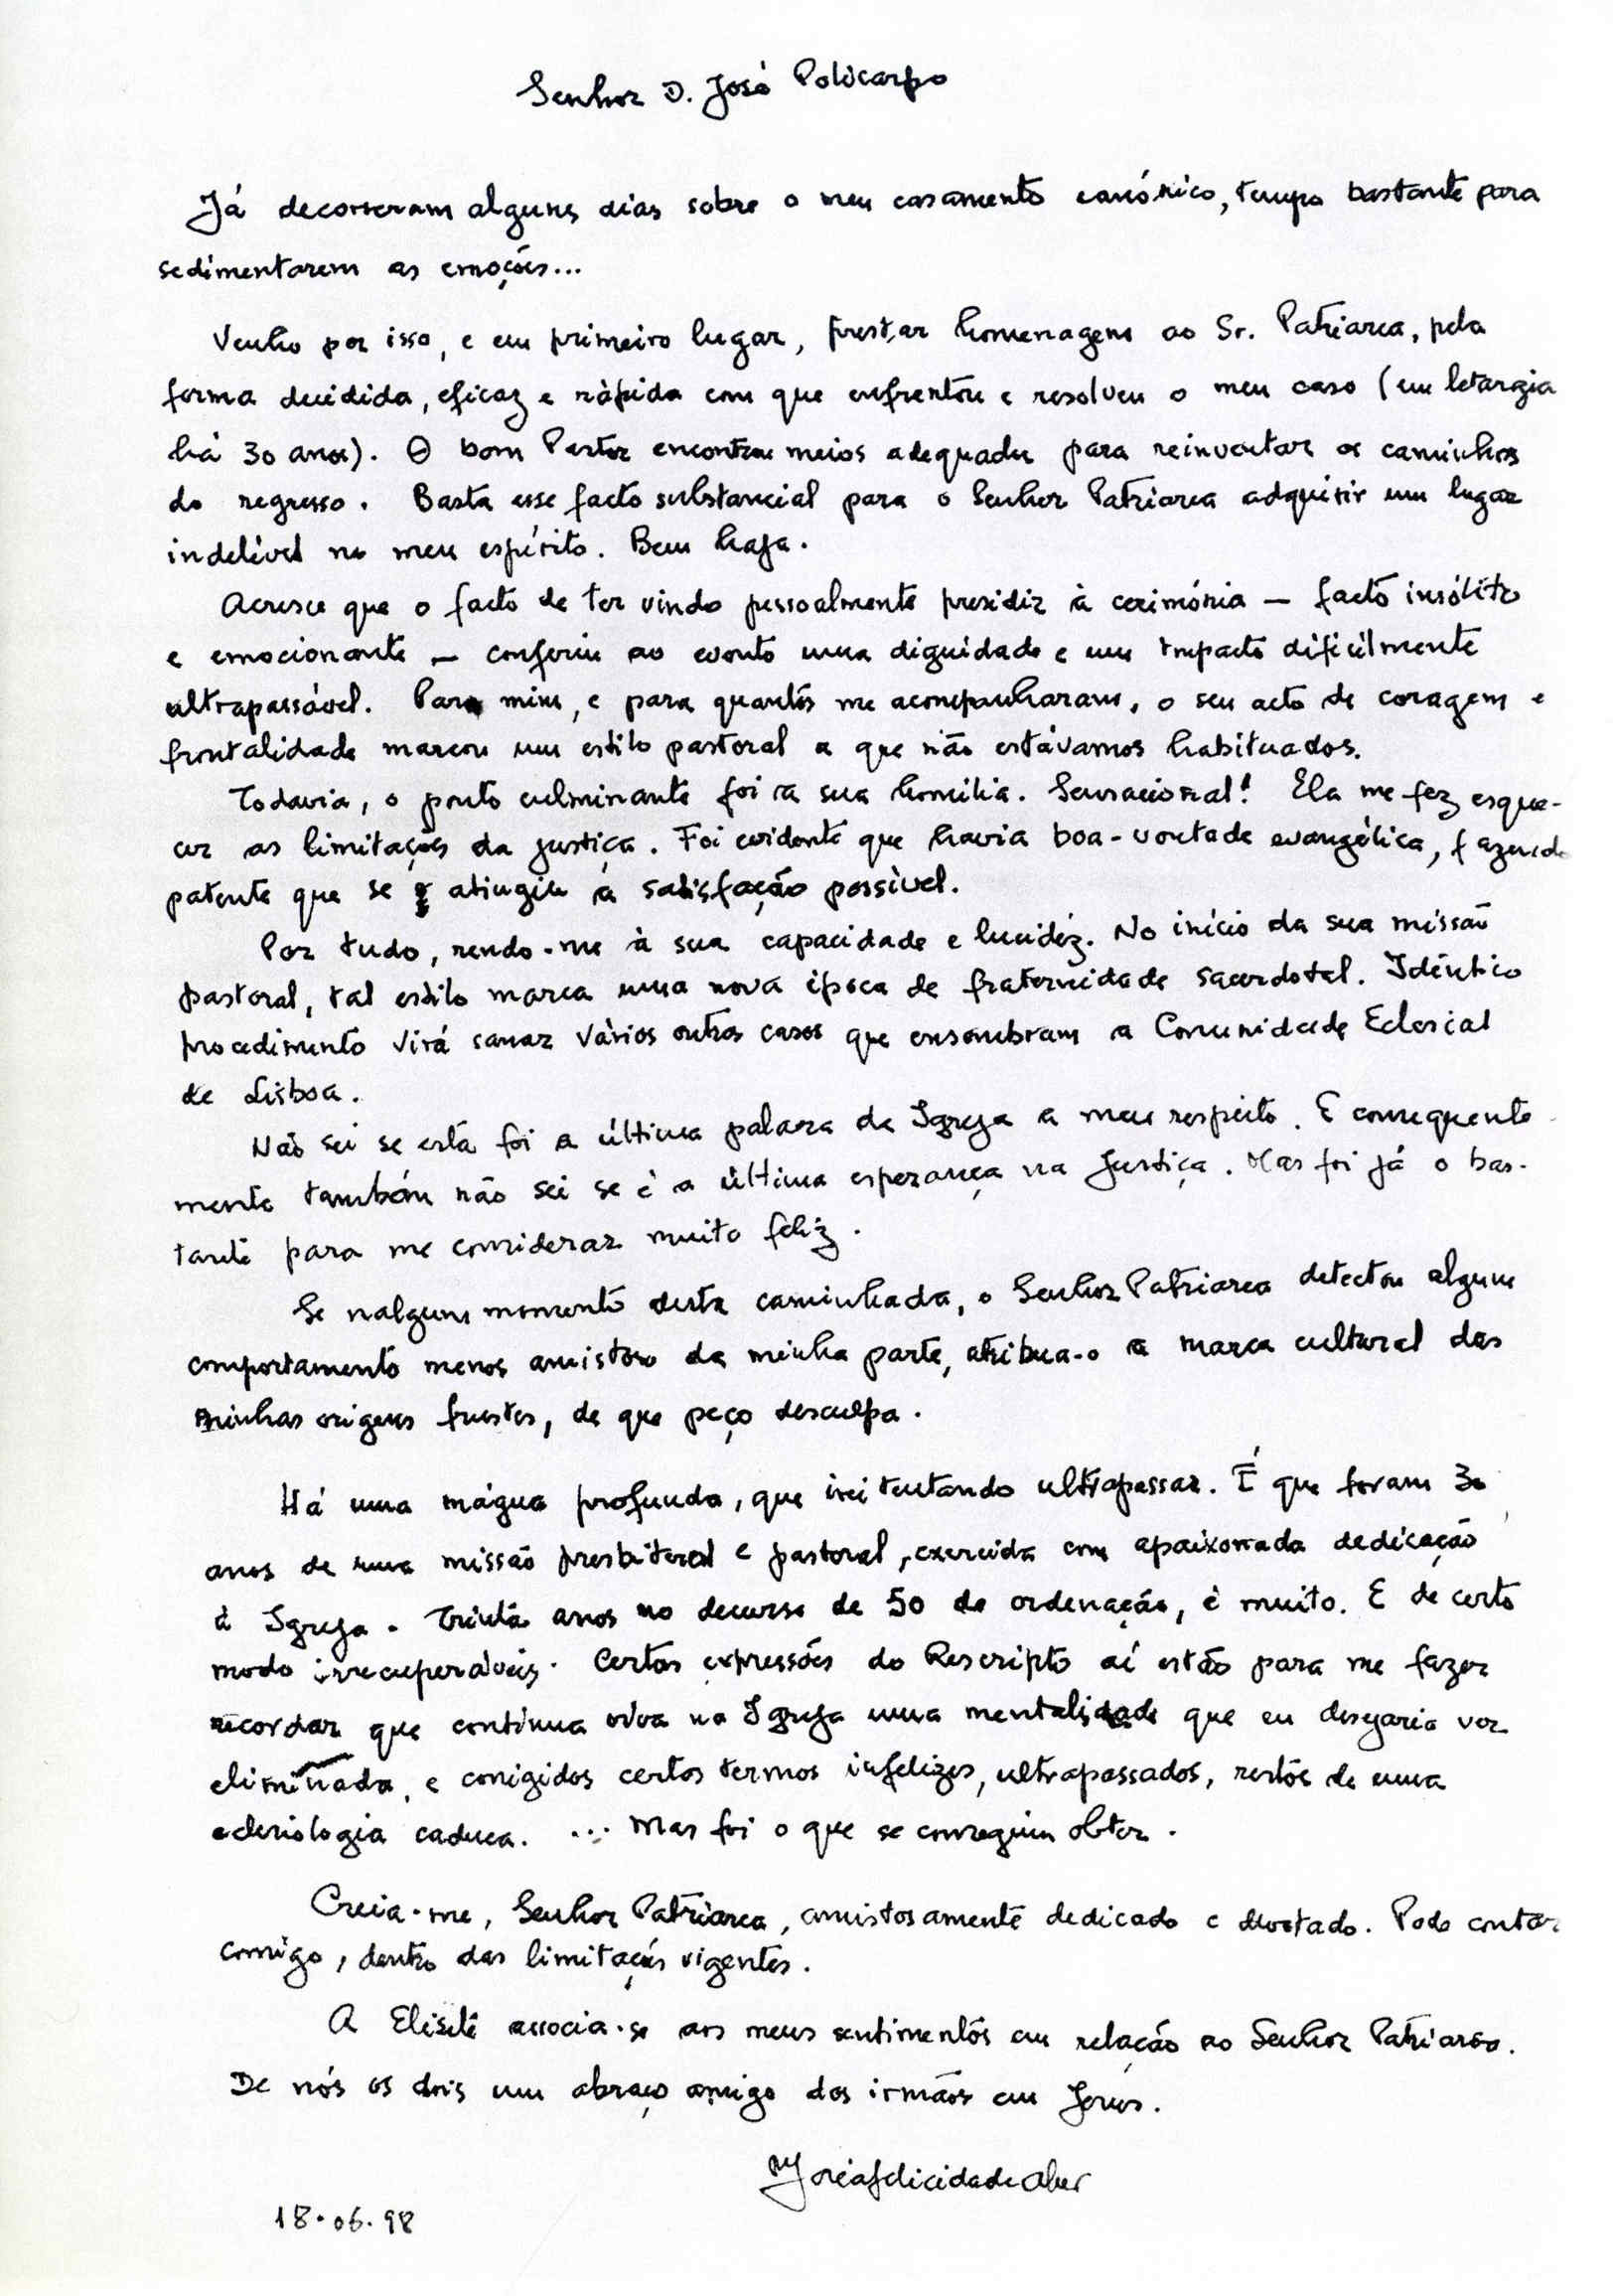 Senhor D. José Policarpo
Já decorreram alguns dias sobre o meu casamento canónico, tempo bastante para
sedimentarem as emoções...
Venho por isso, e em primeiro lugar, prestar homenagem ao Sr. Patriarca, pela
forma decidida, eficaz e rápida com que enfrentou e resolveu o meu caso (em letargia
há 30 anos). O bom Pastor encontrou meios adequados para reinventar os caminhos
do regresso. Basta esse facto substancial para o Senhor Patriarca adquirir um lugar
indelével no meu espírito. Bem haja.
Acresce que o facto de ter vindo pessoalmente presidir à cerimónia — facto insólito
e emocionante — conferiu ao evento uma dignidade e um impacto dificilmente
ultrapassável. Para mim, e para quantos me acompanharam, o seu acto de coragem e
frontalidade marcou um estilo pastoral a que não estávamos habituados.
Todavia, o ponto culminante foi a sua homilia. Sensacional! Ela me fez esque-
cer as limitações da justiça. Foi evidente que havia boa-vontade evangélica, fazendo
patente que se atingiu a satisfação possível.
Por tudo, rendo-me à sua capacidade e lucidez. No início da sua missão
pastoral, tal estilo marca uma nova época de fraternidade sacerdotal. Idêntico
procedimento virá sanar vários outros casos que ensombram a Comunidade Eclesial
de Lisboa.
Não sei se esta foi a última palavra da Igreja a meu respeito. E consequente-
mente também não sei se é a última esperança na Justiça. Mas foi já o bas-
tante para me considerar muito feliz.
Se nalgum momento desta caminhada, o Senhor Patriarca detectou algum
comportamento menos amistoso da minha parte, atribua-o a marca cultural das
minhas origens, de que peço desculpa.
Há uma mágua profunda, que irei tentando ultrapassar. É que foram 30
anos de uma missão presbiteral e pastoral, exercida com apaixonada dedicação
à Igreja. Trinta anos no decurso de 50 de ordenação, é muito. E de certo
modo irrecuperáveis. Certas expressões do Rescripto aí estão para me fazer
recordar que continua viva na Igreja uma mentalidade que eu desejaria ver
eliminada, e corrigidos certos termos infelizes, ultrapassados, restos de uma
eclesiologia caduca. ... Mas foi o que se conseguiu obter.
Creia-me, Senhor Patriarca, amistosamente dedicado e devotado. Pode contar
comigo, dentro das limitações vigentes.
A Elisete associa-se aos meus sentimentos em relação ao Senhor Patriarca.
De nós os dois um abraço amigo dos irmãos em Jesus.
18.06.98